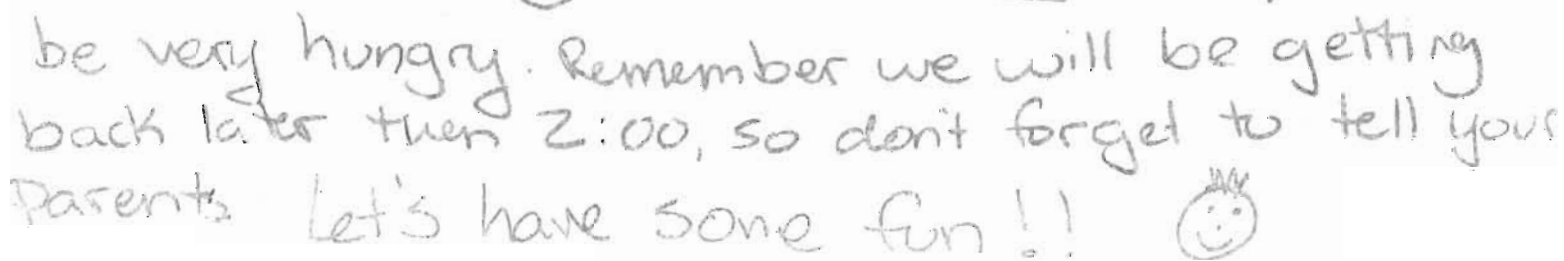 be very hungry. Remember we will be getting
back later then 2:00, so don't forget to tell your
parents Let's have some fun!!